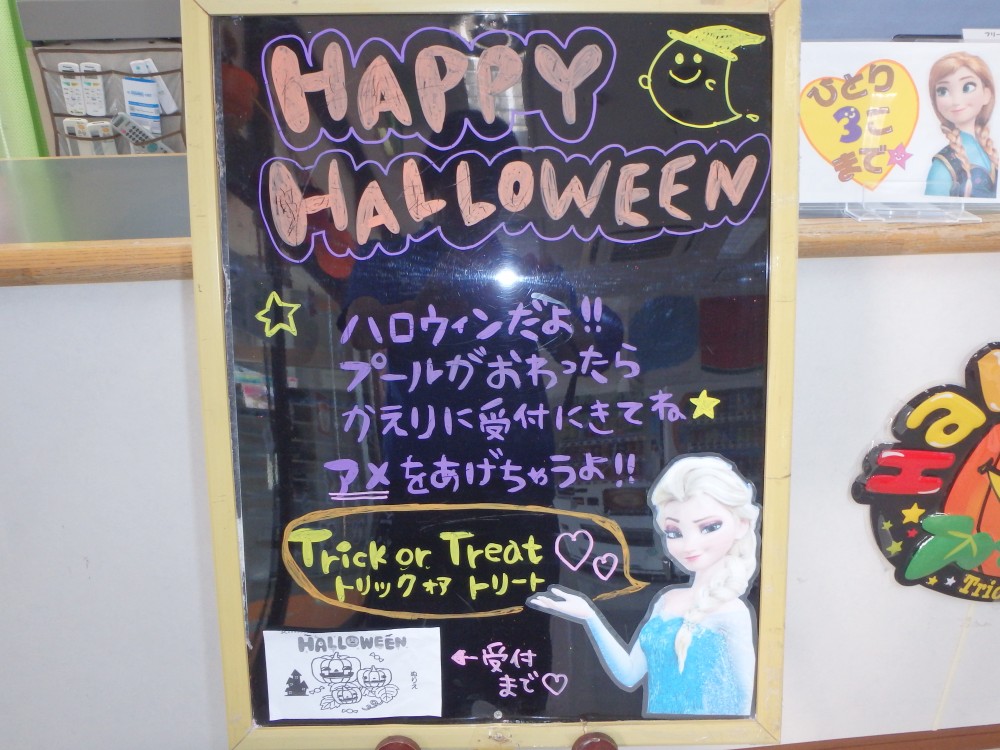 HAPPY
HALLOWEEN
ハロウィンだよ!!
プールがおわったら
かえりに受付にきてね
アメをあげちゃうよ!!
Trick or Treat
トリック オア トリート
HALLOWEEN
ぬりえ
←受付
まで♡
ひとり
3こ
まで